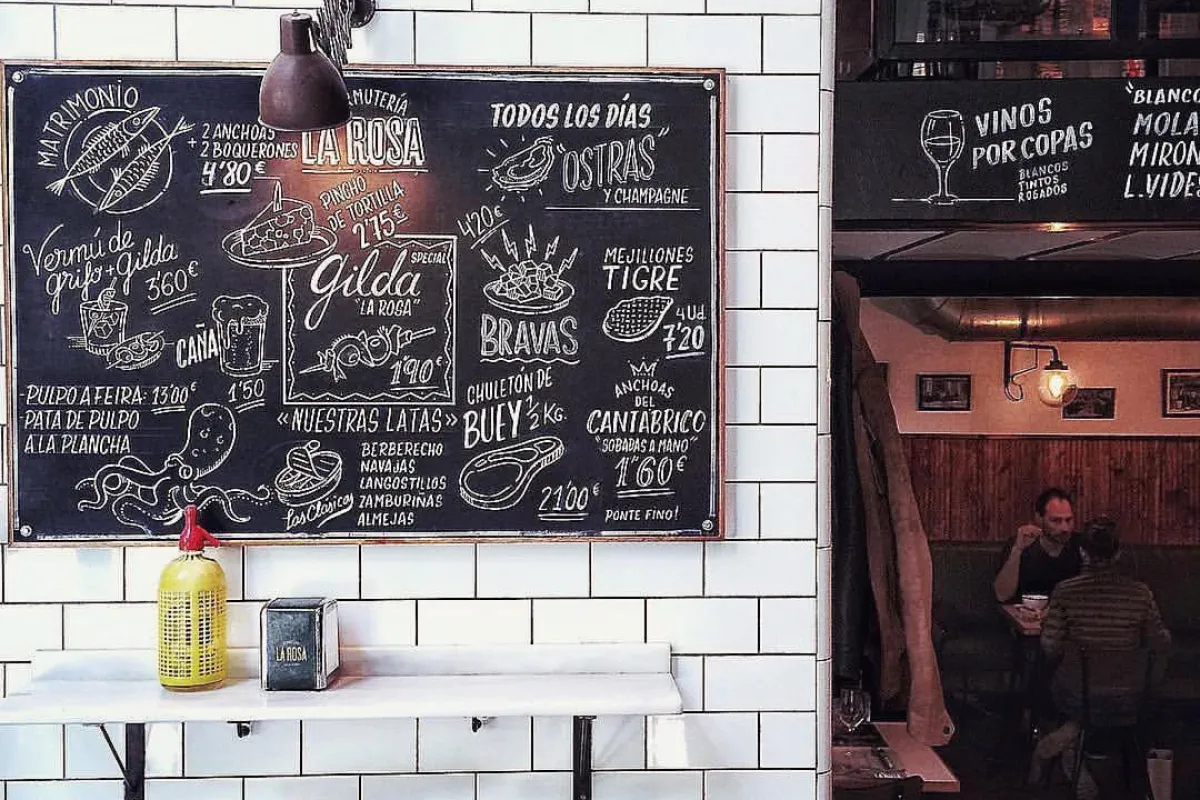 MATRIMONIO
2 ANCHOAS
+ 2 BOQUERONES
4'80€
LA ROSA
PINCHO
DE TORTILLA
2'75€
TODOS LOS DÍAS
"OSTRAS"
Y CHAMPAGNE
Vermú de
grifo + gilda
3'60€
CAÑA
1'50
gilda SPECIAL
"LA ROSA"
1'90€
4'20€
BRAVAS
MEJILIONES
TIGRE
4 Ud.
7'20
-PULPO A FEIRA: 13'00€
-PATA DE PULPO
A LA PLANCHA
«NUESTRAS LATAS»
Las Clásicas
BERBERECHO
NAVAJAS
LANGOSTILLOS
ZAMBURIÑAS
ALMEJAS
CHULETÓN DE
BUEY 1/2 KG.
21'00€
ANCHOAS
DEL
CANTÁBRICO
"SOBADAS A MANO"
1'60€
PONTE FINO!
VINOS
POR COPAS
BLANCOS
TINTOS
ROSADOS
LA ROSA